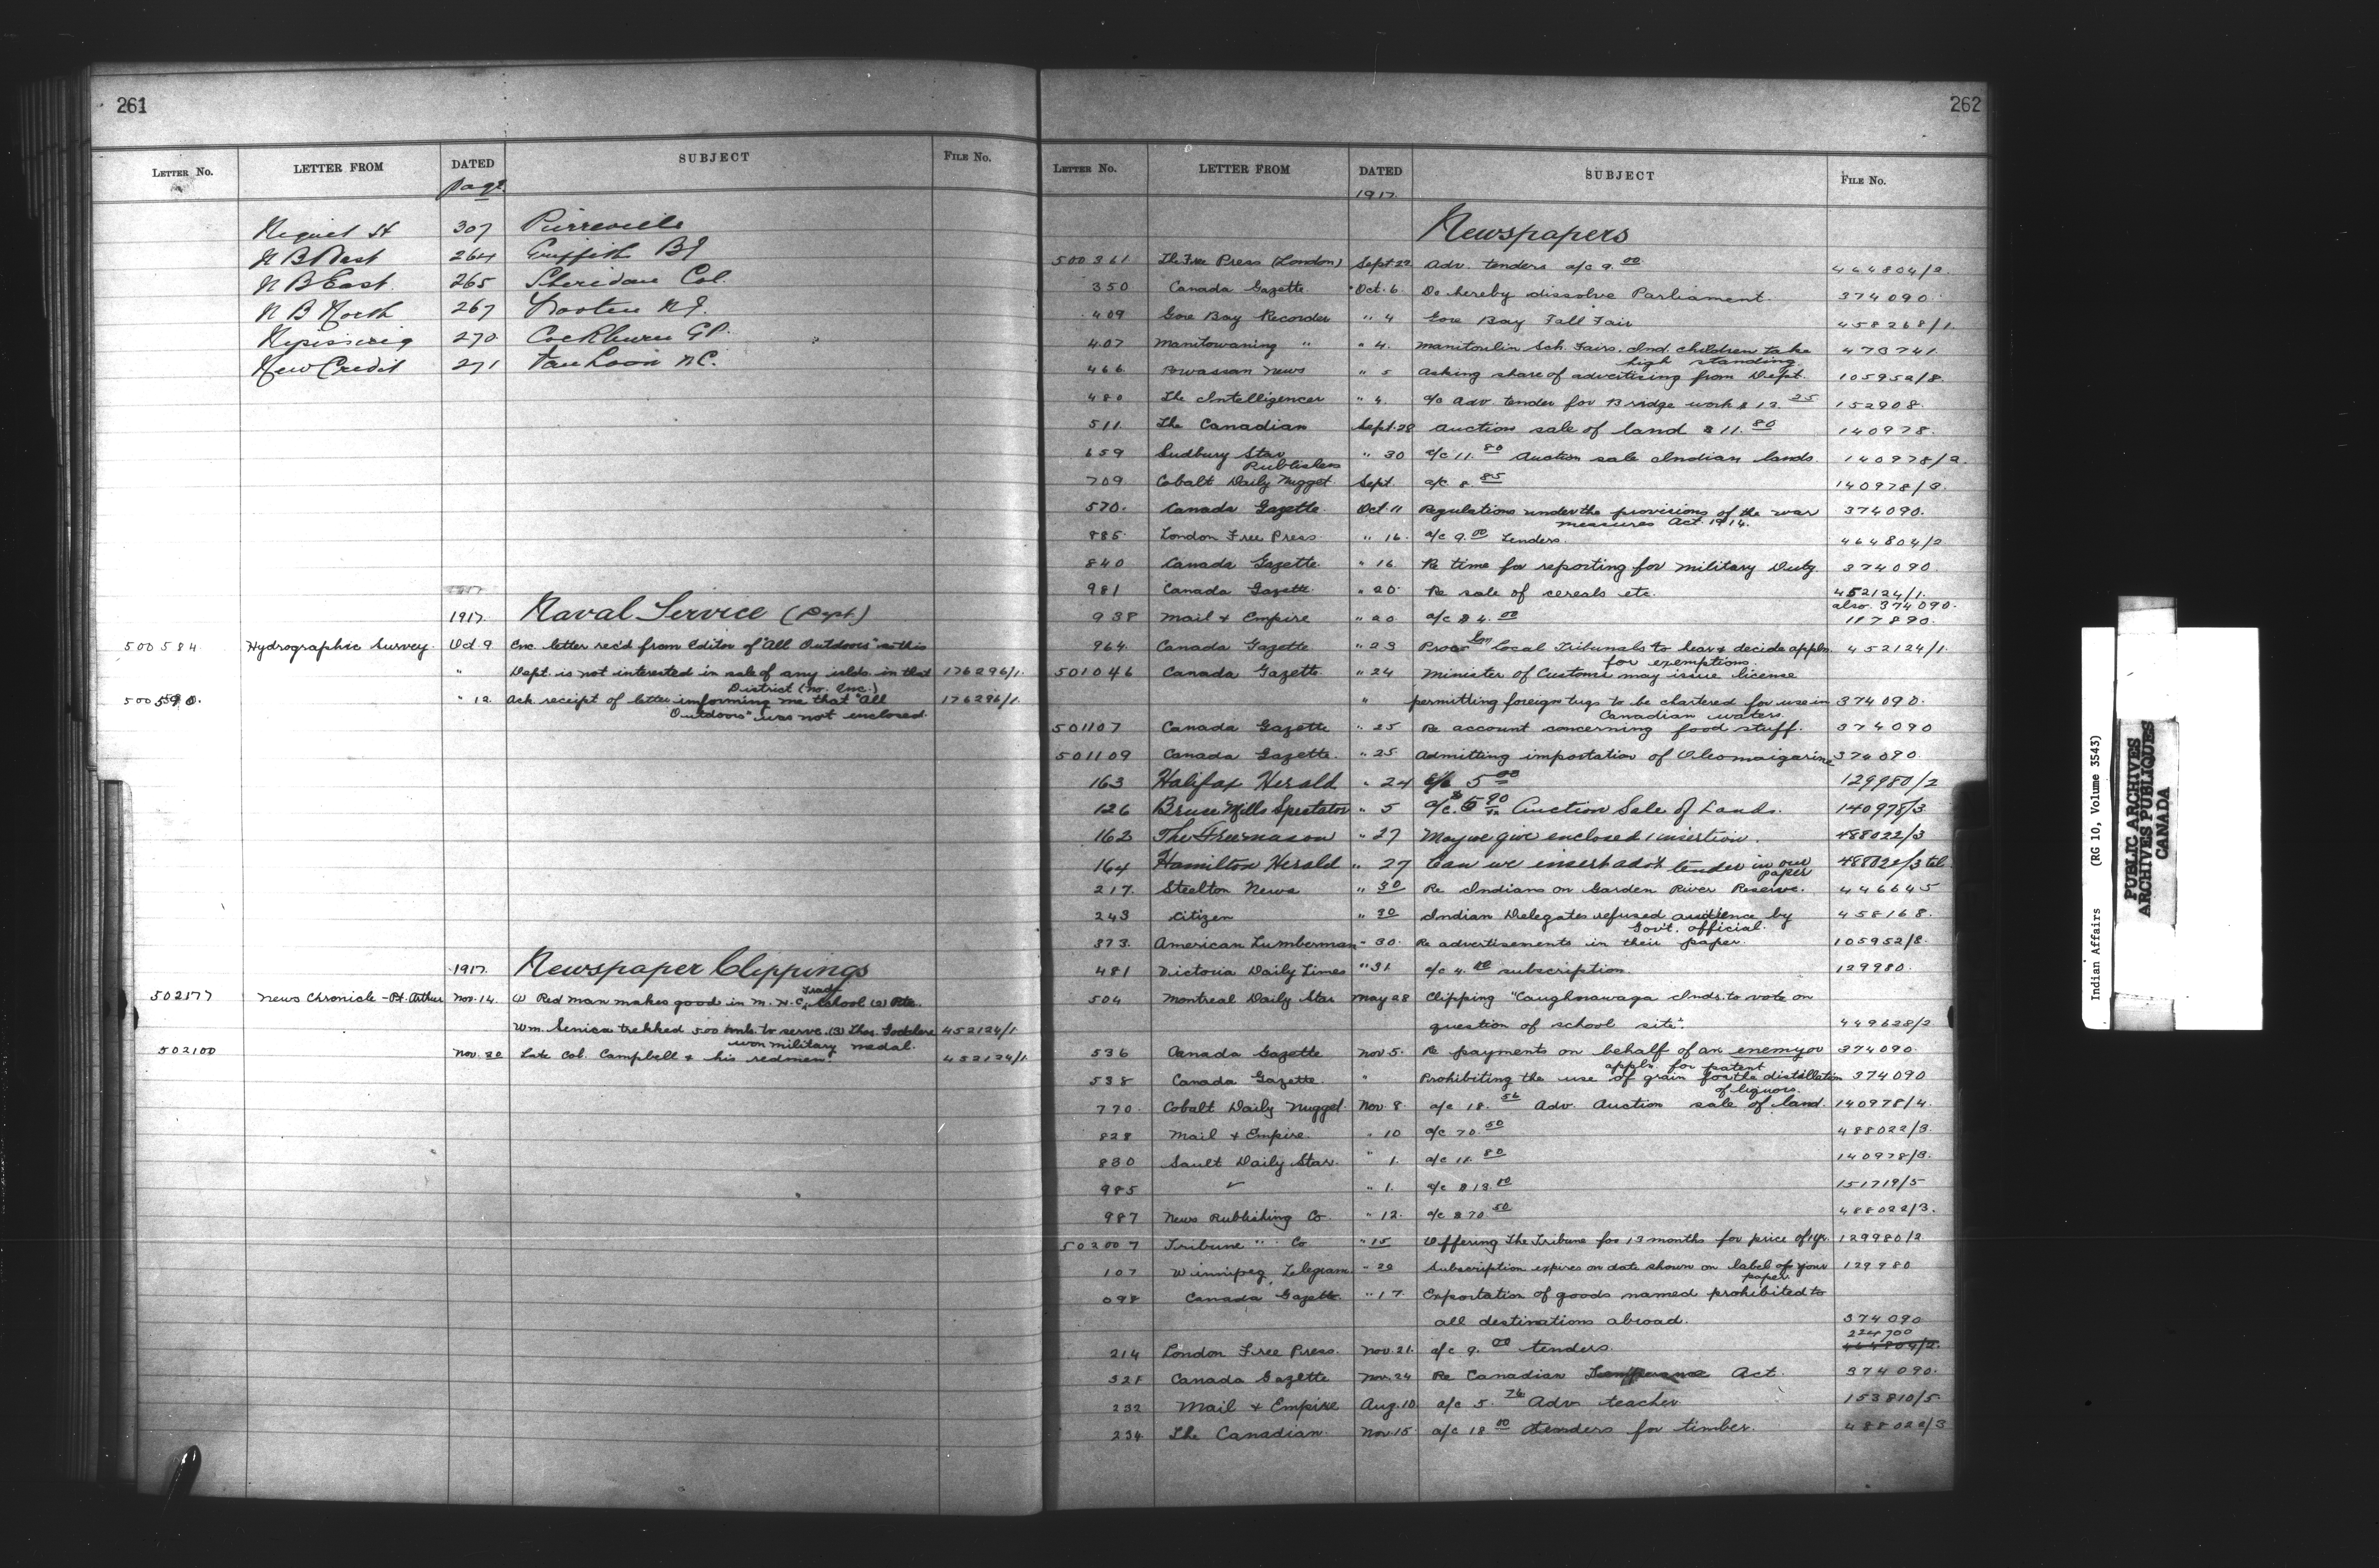 261
LETTER No. LETTER FROM DATED SUBJECT FILE No.
Page
307 Pierreville
264 Griffith BJ
N B East 265 Sheridan Col.
N B North 267
Nipissing 270 Cockburn GP.
New Credit 271 Van Loon RC.
1917 Naval Service (Dept)
500584 Hydrographic Survey Oct 9 Enc. letter rec'd from Editor of "All Outdoors" as this
" Dept. is not interested in sale of any islds. in that 176296/1
District (no. Enc.)
500590. " 12 Ack receipt of letter informing me that "All 176296/1
Outdoors" was not enclosed.
1917 Newspaper Clippings
502577 News Chronicle - Pt. Arthur Nov. 14 (1) Red man makes good in M. H. C. Trade School (2) Pte.
Wm. Senica trekked 500 mls. to serve. (3) Thos. Godchere 452124/1
won military medal.
502100 Nov. 20 Late Col. Campbell & his redmen. 452124/1
262
LETTER No. LETTER FROM DATED SUBJECT FILE No.
1917
Newspapers
500361 The Free Press (London) Sept 22 Adv. tenders a/c 9.00 464804/2
350 Canada Gazette Oct. 6 Do hereby dissolve Parliament. 374090
409 Gore Bay Recorder " 4 Gore Bay Fall Fair 458268/1
407 Manitowaning " " 4. Manitoulin Sch. Fairs. Ind. children take 473741
high standing.
466 Powassan News " 5 Asking share of advertising from Dept. 105952/8.
480 The Intelligencer " 4. a/c adv. tender for Bridge work $12.25 152908.
511. The Canadian Sept. 28 Auction sale of land $11.80 140978.
659 Sudbury Star " 30 a/c 11.80 Auction sale Indian lands. 140978/2.
Publishers
709 Cobalt Daily Nugget Sept. a/c 8.85 140978/3.
570. Canada Gazette Oct. 11 Regulations under the provisions of the war 374090.
measures Act. 1914.
885 London Free Press " 16. a/c 9.00 Tenders. 464804/2
840 Canada Gazette " 16 Re time for reporting for military Duty 374090.
981 Canada Gazette " 20 Re sale of cereals etc. 452124/1.
also 374090.
938 Mail & Empire " 20 a/c $4.00 117890.
964 Canada Gazette " 23 local Tribunals to hear & decide applns. 452124/1.
for exemptions.
501046 Canada Gazette " 24 Minister of Customs may issue license
" permitting foreign tugs to be chartered for use in 374090.
Canadian waters.
501107 Canada Gazette " 25 Re account concerning food stuff. 374090
501109 Canada Gazette. " 25 Admitting importation of Oleomargarine 374090.
163 Halifax Herald " 24 a/c 5.00 129980/2
126 Bruce Mills Spectator " 5 Auction Sale of Lands. 140978/3
162 The Freemason " 27 May we give enclosed 1 insertion. 488022/3
164 Hamilton Herald " 27 Can we insert advt tender in our 488022/3
paper
217. Steelton News " 30 Re Indians on Garden River Reserve. 446645
243 Citizen " 30 Indian Delegates refused audience by 458168.
Gov't. official.
373. American Lumberman " 30. Re advertisements in their paper. 105952/8.
481 Victoria Daily Times " 31 a/c 4.00 subscription 129980.
504 Montreal Daily Star May 28 Clipping "Caughnawaga Inds. to vote on
question of school site". 449628/2
536 Canada Gazette Nov 5. Re payments on behalf of an enemy or 374090.
appln. for patent
538 Canada Gazette. " Prohibiting the use of grain for the distillation 374090
of liquors.
770. Cobalt Daily Nugget Nov 8. a/c 18. Adv. Auction sale of land 140978/4.
828 Mail & Empire. " 10 a/c 70.50 488022/3.
830 Sault Daily Star. " 1. a/c 11.80 140978/3.
985 " 1. a/c $13.00 151719/5
987 News Publishing Co " 12. a/c $70.50 488022/3.
502007 Tribune " Co " 15 Offering The Tribune for 13 months for price of 1 yr. 129980/2
107 Winnipeg Telegram " 20 Subscription expires on date shown on label of your 129980
paper.
098 Canada Gazette " 17. Exportation of goods named prohibited to
all destinations abroad. 374090
224700
214 London Free Press. Nov. 21. a/c 9.00 tenders 464804/2.
321 Canada Gazette Nov. 24 Re Canadian Temperance Act. 374090.
232 Mail & Empire Aug. 10 a/c 5.76 Adv. teacher 153810/5
234 The Canadian. Nov 15. a/c 18.00 tenders for timber. 488022/3
Indian Affairs (RG 10, Volume 3543)
PUBLIC ARCHIVES
ARCHIVES PUBLIQUES
CANADA